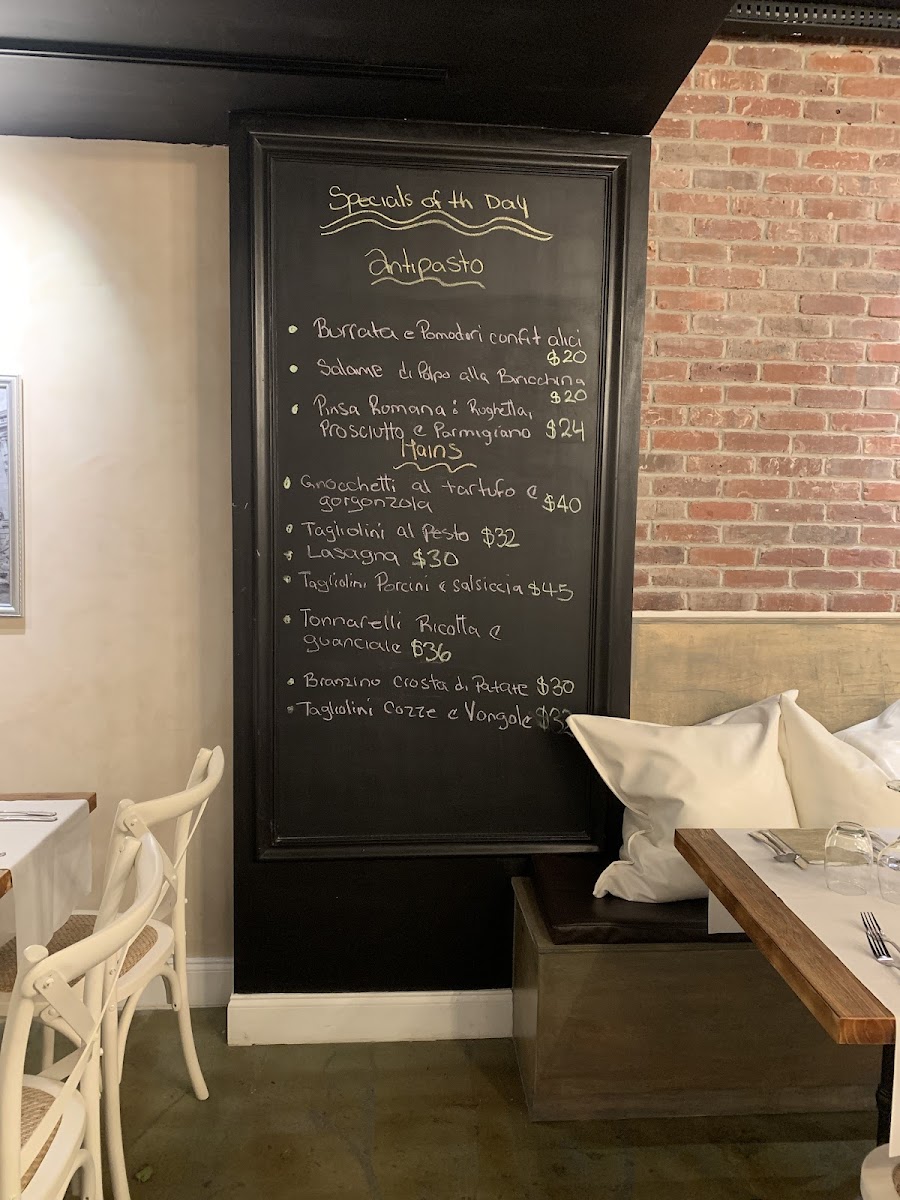 Specials of th Day
Antipasto
• Burrata e Pomodori confit alici
$20
• Salame di Polpo alla Baricchina
$20
• Pinsa Romana: Rughetta,
Prosciutto e Parmigiano $24
Mains
• Gnocchetti al tartufo e
gorgonzola $40
• Tagliolini al Pesto $32
• Lasagna $30
• Tagliolini Porcini e salsiccia $45
• Tonnarelli Ricotta e
guanciale $36
• Branzino crosta di Patate $30
• Tagliolini Cozze e Vongole $32